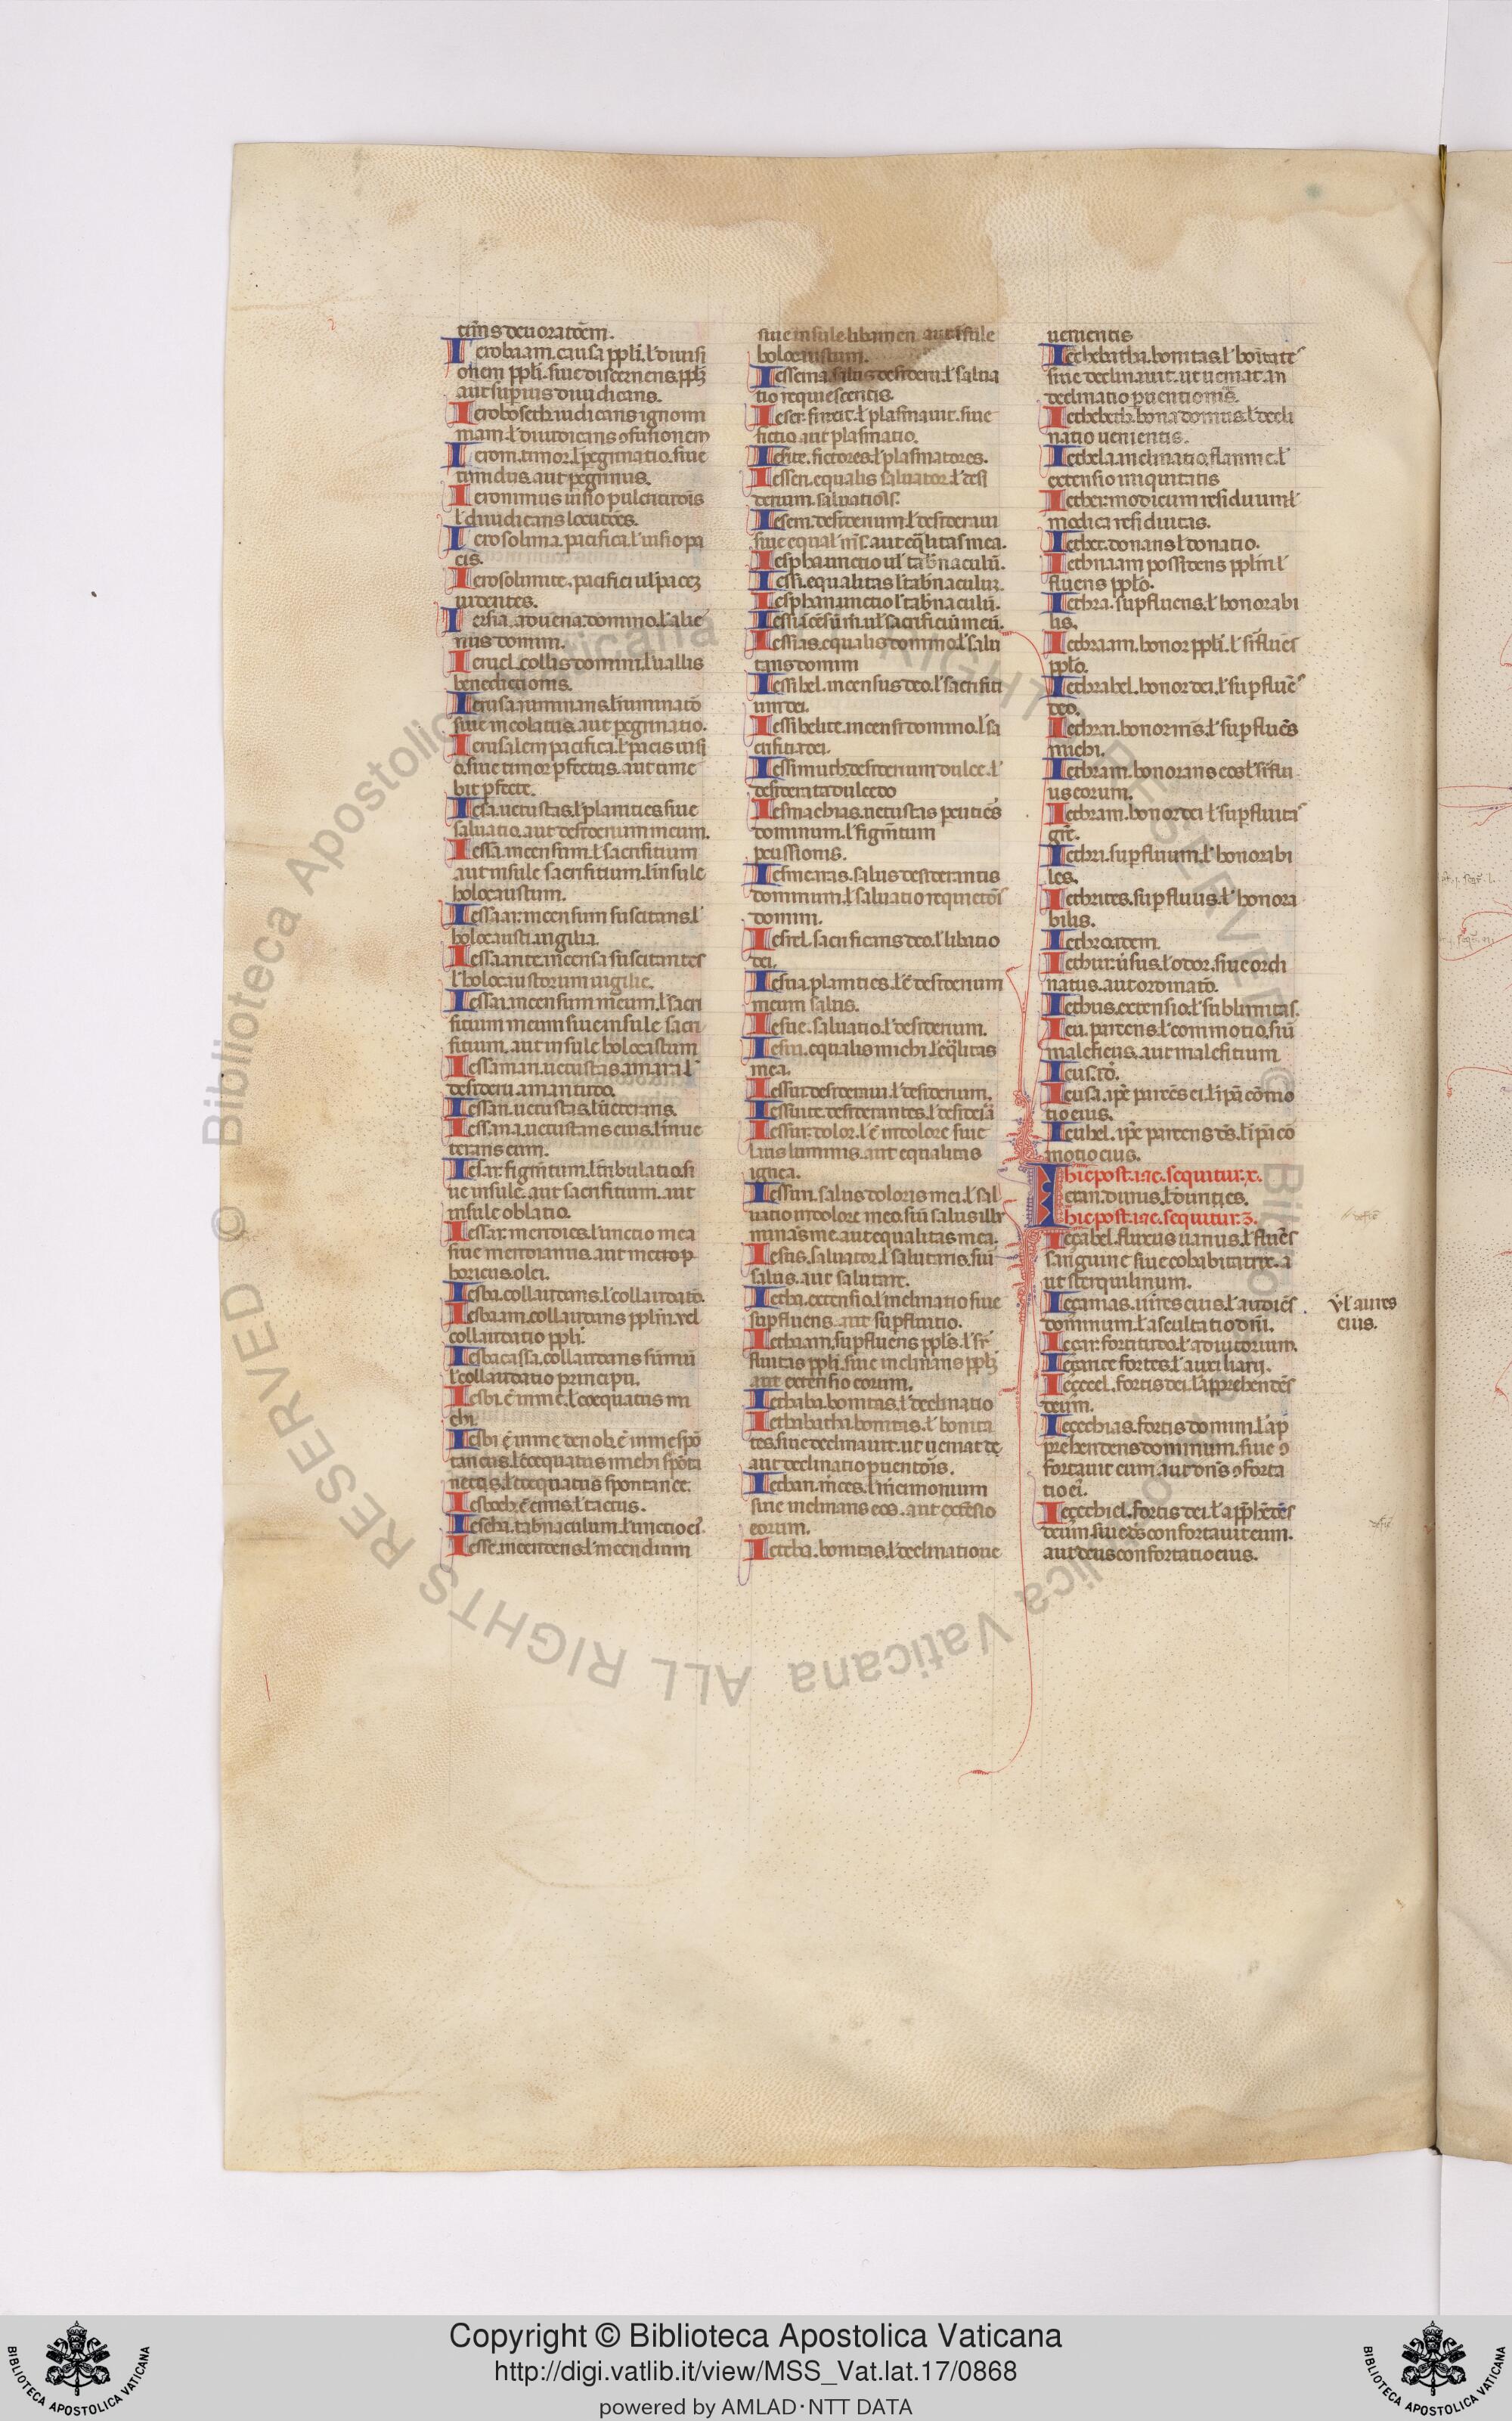 tim̄s deuoratōēm.
Ieroboam. causa ppl̄i. l' diuisi
onem ppl̄i. siue discernens pplꝫ
aut supius diiudicans.
Ieroboseth iudicans ignomi
niam. l' diiudicans ꝯfusionem
Ierom. timor. l' pegrinatio. siue
timidus. aut pegrinus.
Ieronimus uisio pulcritudis
l' diiudicans locutōes.
Ierosolima. pacifica. l' uisio pa
cis.
Ierosolimite. pacifici ul' pacez
uidentes.
Iersia. aduena domino. l' alie
nus domini.
Ieruel. collis domini. l' uallis
benedictionis.
siue incolatus. aut pegrinatio.
Ierusalem pacifica. l' pacis uisi
o. siue timor pfectus. aut time
bit pfecte.
Iesa. uetustas. l' planities siue
saluatio. aut desiderium meum.
Iessa. incensum. l' sacrifitium
aut insule sacrifitium. l' insule
holocaustum.
Iessaar. incensum suscitans. l'
holocausti uigilia.
Iessaante. incensa suscitantes
l' holocaustorum uigilie.
Iessai. incensum meum. l' sacri
fitium meum siue insule sacri
fitium. aut insule holocastum
Iessaman. uetustas. amara. l'
desiderii amaritudo.
Iessan. uetustas. l' ueterans.
Iessana. uetustans eius. l' inue
terans eum.
Iesar. figm̄tum. l' tribulatio. si
ue insule. aut sacrifitium. aut
insule oblatio.
siue meridianus. aut meridio p
boricus olei.
Iesba. collaudans. l' collaudatō.
Iesbaam. collaudans ppl̄m. vel
collaudatio ppl̄i.
Iesbacassa. collaudans sum̄u
l' collaudatio principii.
Iesbi. ē in me. l' coequatus mi
chi.
taneus. l' coequatus michi spōta
neus. l' coequatus spontanee.
Iesboch. ē eis. l' tactus.
Iescha. tab̄naculum. l' unctio ei'.
Iesse. incendens. l' incendium
siue insule libamen aut isule
holocaustum.
Iessema. salus desiderii. l' salua
tio requiescentis.
Ieser. finxit. l' plasmauit. siue
fictio aut plasmatio.
Iesite. fictores. l' plasmatores.
Iessen. equalis saluator. l' desi
derium. saluatiōis.
Iesem. desiderium. l' desideraui
siue equal' m̄s. aut eq̄litas mea.
Iespha unctio ul' tab̄naculū.
Iessi. equalitas l' tab̄naculuꝫ.
Iesphan. unctio l' tab̄naculū.
Iessi icēsū m̄. ul' sacrificiū meū.
Iessias. equalis domino. l' salu
tans domini
Iessibel. incensus deo. l' sacrifiti
um dei.
Iessibelite. incensi domino. l' sa
crifiti dei.
Iessimuth. desiderium dulce. l'
desiderata dulcedo
Iesmachias. uetustas peutiēs
dominum. l' figm̄tum
peussionis.
Iesmeias. salus desiderantis
dominum. l' saluatio requietōis
domini.
Iesrel. sacrificans deo. l' libatio
dei.
Iesua. planities. l' ē desiderium
meum salus.
Iesue. saluatio. l' desiderium.
Iesui. equalis michi. l' eq̄litas
mea.
Iessui. desideraui. l' desiderium.
Iessuite. desiderantes. l' desideia
Iessur. dolor. l' ē in dolore siue
laus luminis. aut equalitas
ignea.
Iessuri. salus doloris mei. l' sal
uatio in dolore meo. siū salus illu
minās me. aut equalitas mea.
Iesus. saluator. l' salutaris. siū
salus. aut salutare.
Ietba. extensio. l' inclinatio siue
supfluens. aut supfluitio.
Iethaam. supfluens ppl̄s. l' sr̄
fluitas ppl̄i. siue inclinans pplꝫ
aut extensio eorum.
Iethaba. bonitas. l' declinatio
Iethabatha. bonitas. l' bonita
tes. siue declinauit. ut ueniat de
aut declinatio puentōis.
siue inclinans eos. aut extēsio
eorum.
Ieteba. bonitas. l' declinatione
uenientis
Iethebatha. bonitas. l' bonitate'
siue declinauit. ut ueniat. an
declinatio puentionis.
Iethebeth. bona domus. l' decli
natio uenientis.
Iethela. inclinatio. flamme. l'
extensio iniquitatis
Iether. modicum residuum l'
modica residuitas.
Iethet. donans l' donatio.
Iethnaam possidens ppl̄m l'
fluens ppl̄o.
Iethra. supfluens. l' honorabi
lis.
Iethraam. honor ppl̄i. l' sr̄fluēs
ppl̄o.
Iethrabel. honor dei. l' supfluēs
deo.
Iethrai. honor m̄s. l' supfluēs
michi.
Iethram. honorans eos l' sr̄flu
us eorum.
Iethri. supfluum. l' honorabi
les.
Iethrites. supfluus. l' honora
bilis.
Iethro. idem.
Iethur. ūsus. l' odor. siue ordi
natus. aut ordinatō.
Iethus. extensio. l' sublimitas.
Ieu. parens. l' commotio. siū
maleficus. aut malefitium
Ieus. id.
Ieusa. ipē parēs ei. l' ipā cōmo
tio eius.
Ieubel. ipē parens ds. l' ipā cō
motio eius.
hic post. ie. sequitur. x.
Iexan. durus. l' durities.
hic post. ie. sequitur. z.
Ieçabel. fluxus uanus. l' fluēs
sanguine siue cohabitatrix. a
ut sterquilinum.
Ieçanias. uires eius. l' audiēs
dominum. l' ascultatio dn̄i.
Ieçar. fortitudo. l' adiutorium.
Ieçarite fortes. l' auxiliarii.
Ieçecel. fortis dei. l' apprehendēs
deum.
Ieçechias. fortis domini. l' ap
prehendens dominum. siue ꝯ
fortauit eum. aut dn̄s ꝯforta
tio ei'.
Ieçechiel. fortis dei. l' app̄hēdēs
deum. siue ds confortauit eum.
aut deus confortatio eius.
vl' aures
eius.
© Biblioteca Apostolica Vaticana ALL RIGHTS RESERVED
Copyright © Biblioteca Apostolica Vaticana
http://digi.vatlib.it/view/MSS_Vat.lat.17/0868
powered by AMLAD·NTT DATA
BIBLIOTECA APOSTOLICA VATICANA
BIBLIOTECA APOSTOLICA VATICANA